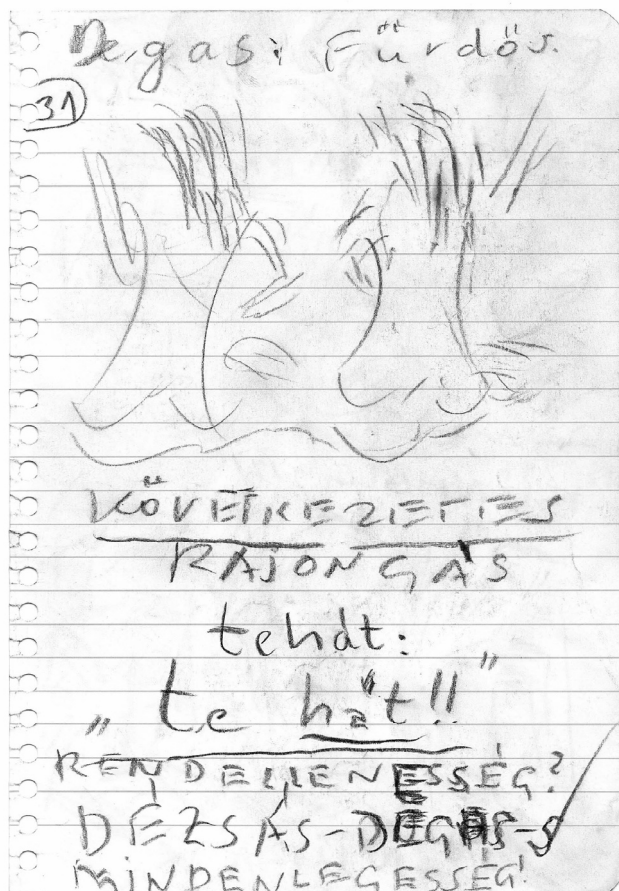 Degas: Fürdős.
31
KÖVETKEZETES
RAJONGÁS
tehát:
„te hát!!”
RENDELLENESSÉG?
DÉZSÁS-DEGAS-S
MINDENLEGESSÉG!